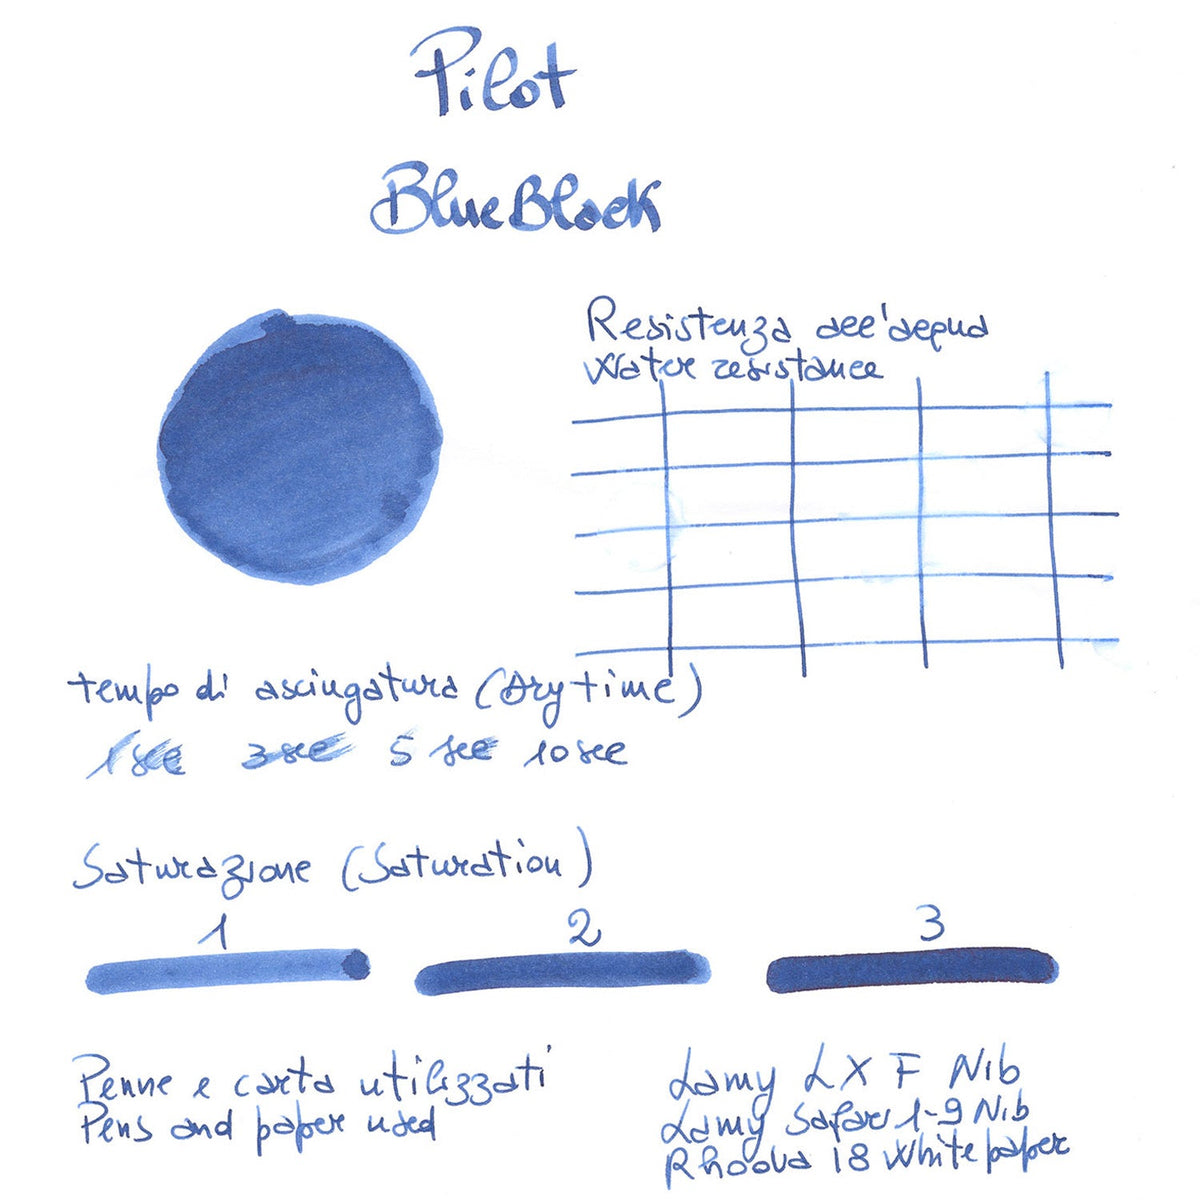 Pilot
BlueBlack
Resistenza all'acqua
Water resistance
tempo di asciugatura (Dry time)
1 sec 3 sec 5 sec 10 sec
Saturazione (Saturation)
1 2 3
Penne e carta utilizzati
Pens and paper used
Lamy LX F Nib
Lamy Safari 1-9 Nib
Rhodia 18 White paper